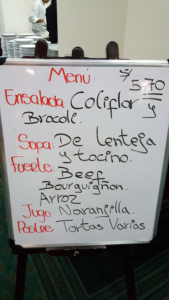 Menú
S/ 5.70
Ensalada: Coliflor y
Brocoli.
Sopa: De lenteja
y tocino.
Fuerte: Beef
Bourguignon.
Arroz
Jugo Naranjilla.
Postre: Tortas Varias.